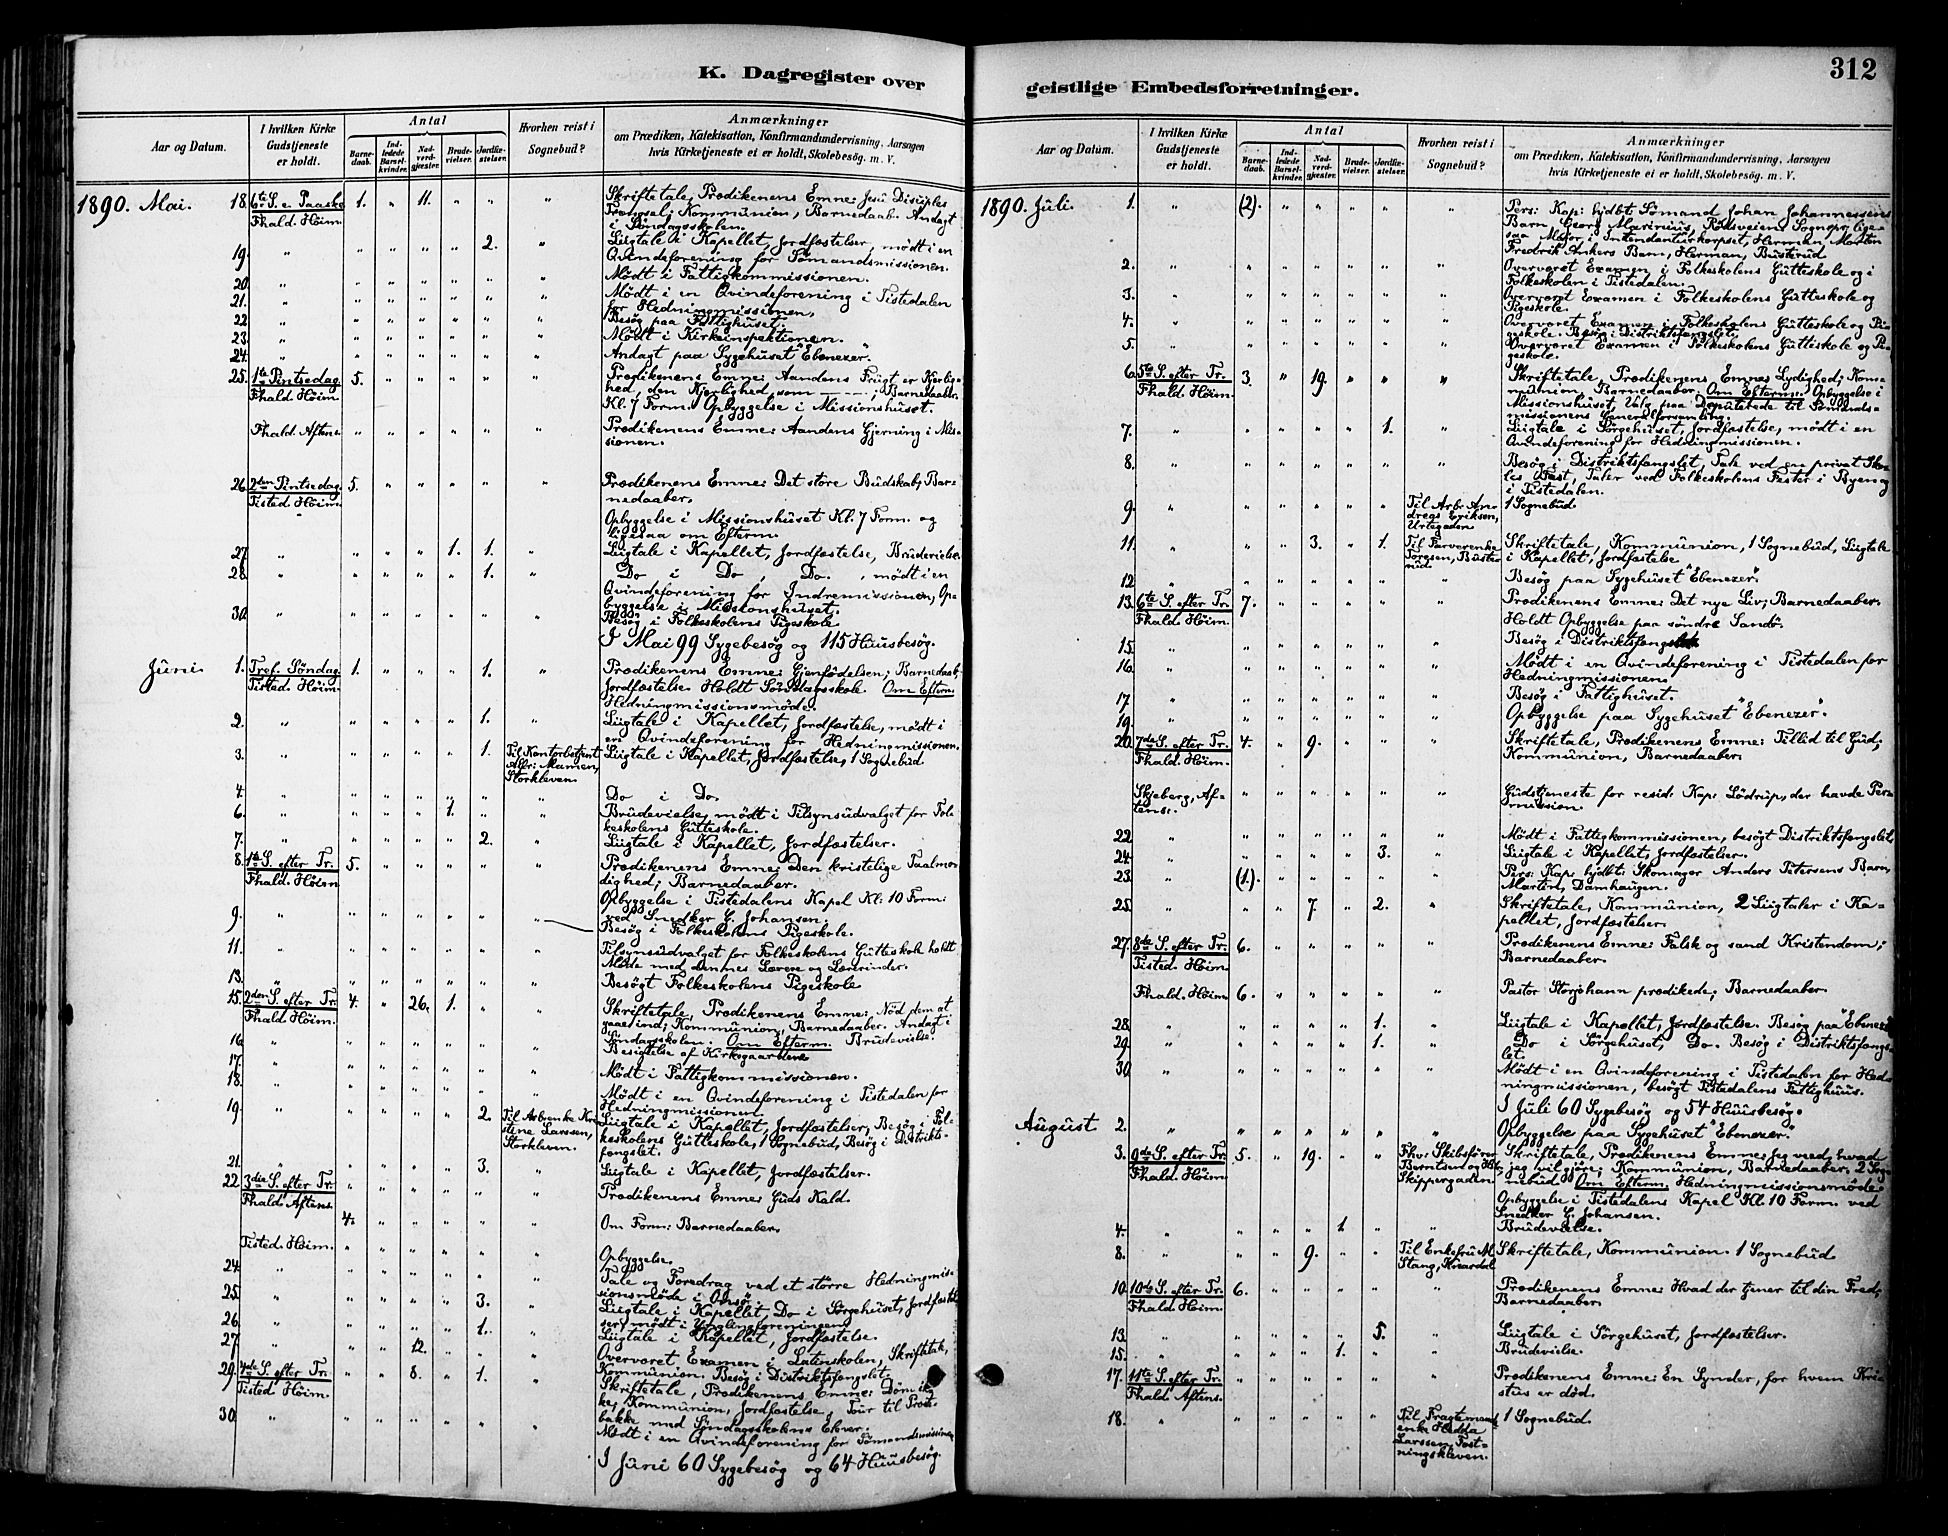 K. Dagregister over
Aar og Datum.
I hvilken Kirke Gudstjeneste er holdt.
Antal
Barnedaab.
Indledede Barselkvinder.
Nadverdgjester.
Brudevielser.
Jordfæstelser.
Hvorhen reist i Sognebud?
Anmærkninger
om Prædiken, Katekisation, Konfirmandundervisning, Aarsagen
hvis Kirketjeneste ei er holdt, Skolebesøg. m. V.
1890. Mai. 18. 6te S. e. Paaske 1. " 11. " " " Skriftetale, Prædikenens Emne: Jesu Disciples
Fhald. Høim. Trængsel; Kommunion, Barnedaab. Andagt
i Søndagsskolen.
19. " " " " " 2. " Liigtale i Kapellet, Jordfæstelser, mødt i en
Qvindeforening for Sømandsmissionen.
20. " " " " " " " Mødt i Fattigkommissionen.
21. " " " " " " " Mødt i en Qvindeforening i Tistedalen
for Hedningmissionen.
22 " " " " " " " Besøg paa Fattighuset.
23. " " " " " " " Mødt i Kirkeinspektionen.
24. " " " " " " " Andagt paa Sygehuset "Ebenezer".
25. 1ste Pintsedag 5. " " " " " Prædikenens Emne: Aandens Frugt er Kjerlig-
Fhald Høim. hed, den Kjerlighed, som ———; Barnedaaber.
Kl. 7 Form. Opbyggelse i Missionshuset.
Fhald. Aftens. " " " " " " Prædikenens Emne: Aandens Gjerning i Mis-
sionen.
26. 2den Pintsedag 5. " " " " " Prædikenens Emne: Det store Budskab, Bar-
Tisted. Høim. nedaaber.
Opbyggelse i Missionshuset Kl. 7 Form. og
ligesaa om Efterm.
27. " " " " 1. 1. " Liigtale i Kapellet, Jordfæstelse, Brudevielse
28. " " " " " 1. " Do i Do, Do., mødt i en
Qvindeforening for Indremissionen, Op-
byggelse i Missionshuset.
30. " " " " " " " Besøg i Folkeskolens Pigeskole
I Mai 99 Sygebesøg og 115 Huusbesøg.
Juni 1. Tref. Søndag 1. " " " 1. " Prædikenens Emne: Gjenfødelsen; Barnedaab,
Tisted. Høim. Jordfæstelse. Holdt Søndagsskole. Om Efterm
Hedningmissionsmøde.
2. " " " " " 1. " Liigtale i Kapellet, Jordfæstelse, mødt i
en Qvindeforening for Hedningmissionen.
3. " " " " " 1. Til Kontorbetjent Liigtale i Kapellet, Jordfæstelse, 1 Sognebud.
Alfr: Mamen,
Storkleven.
4. " " " " " " " Do i Do.
6. " " " " 1. " " Brudevielse, mødt i Tilsynsudvalget for Fol-
keskolens Gutteskole.
7. " " " " " 2. " Liigtale i Kapellet, Jordfæstelser.
8. 1ste S. efter Tr. 5. " " " " " Prædikenens Emne: Den kristelige Taalmo-
Fhald. Høim dighed, Barnedaaber.
Opbyggelse i Tistedalens Kapel Kl. 10 Form:
ved Snedker G. Johansen.
9. " " " " " " " Besøg i Folkeskolens Pigeskole.
11. " " " " " " " Tilsynsudvalget for Folkeskolens Gutteskole holdt
Møde med dennes Lærere og Lærerinder.
13. " " " " " " " Besøgt Folkeskolens Pigeskole
15. 2den S. efter Tr. 4. " 26. 1. " " Skriftetale, Prædikenens Emne: Nød dem at
Fhald. Høim. gaae ind; Kommunion, Barnedaaber. Andagt i
Søndagsskolen. Om Efterm. Brudevielse.
16. " " " " " " " Besigtelse af Kirkegaardene
17. " " " " " " " Mødt i Fattigkommissionen.
18. " " " " " " " Mødt i en Qvindeforening i Tistedalen for
Hedningmissionen
19. " " " " " 2. Til Arb: enke Kri- Liigtale i Kapellet, Jordfæstelser, Besøg i Fol-
stine Larssen, keskolens Gutteskole, 1 Sognebud, Besøg i Distrikts-
Storkleven. fængslet.
21. " " " " " 3. " Liigtale i Kapellet, Jordfæstelser.
22. 3die S. efter Tr. " " " " " " Prædikenens Emne: Guds Kald.
Fhald. Aftens.
4. " " " " " Om Form: Barnedaaber.
Tisted. Høim. " " " " " " Opbyggelse.
24. " " " " " " " Tale og Foredrag ved et større Hedningmis-
sionsmøde i Onsø.
25. " " " " " 3. " Liigtale i Kapellet, Do i Sørgehuset, Jordfæstel-
ser, mødt i Ynglingforeningen
26. " " " " " 1. " Liigtale i Kapellet, Jordfæstelse.
27. " " " 12. " " " Overværet Examen i Latinskolen, Skriftetale,
Kommunion. Besøg i Distriktsfængslet.
29. 4de S. efter Tr. " " 8. " 1. " Skriftetale, Prædikenens Emne: Døm ik-
Tisted Høim. ke; Kommunion, Jordfæstelse, Tour til
bakke med Søndagsskolens Elever.
30. " " " " " " " Mødt i en Qvindeforening for Sømandsmissionen
I Juni 60 Sygebesøg og 64 Huusbesøg.
geistlige Embedsforretninger.
312
Aar og Datum.
I hvilken Kirke Gudstjeneste er holdt.
Antal
Barnedaab.
Indledede Barselkvinder.
Nadverdgjester.
Brudevielser.
Jordfæstelser.
Hvorhen reist i Sognebud?
Anmærkninger
om Prædiken, Katekisation, Konfirmandundervisning, Aarsagen
hvis Kirketjeneste ei er holdt, Skolebesøg. m. V.
1890. Juli. 1. " (2). " " " " " Pers: Kap: hjdbt Sømand Johan Johannessens
Barn Georg Marinius, Rødsveien, Sognepr. lige-
saa Major i Intendanturkorpset, Herman Martin
Fredrik Ankers Barn, Herman, Busterud
2. " " " " " " " Overværet Examen i Folkeskolens Gutteskole og i
Folkeskolen i Tistedalen.
3. " " " " " " " Overværet Examen i Folkeskolens Gutteskole og
Pigeskole.
4. " " " " " " " Overværet Examen i Folkeskolens Gutteskole og Pi-
geskole. Besøg i Distriktsfængslet.
5. " " " " " " " Overværet Examen i Folkeskolens Gutteskole og Pi-
geskole.
6. 5te S. efter Tr. 3. " 19. " " " Skriftetale, Prædikenens Emne: Lydighed; Kom-
Fhald. Høim. munion, Barnedaaber. Om Efterm: Opbyggelse i
Missionshuset, Valg paa Deputerede til Sømands-
missionens Generalforsamling.
7. " " " " " 1. " Liigtale i Sørgehuset, Jordfæstelse, mødt i en
Qvindeforening for Hedningmissionen.
8. " " " " " " " Besøg i Distriktsfængslet, Tale ved en privat Sko-
les Fest, Taler ved Folkeskolens Fester i Byen og
i Tistedalen.
9. " " " " " " Til Arb: An- 1 Sognebud
dreas Eriksen,
Urtegaden
11. " " " 3. " 1. Til Farverenke Skriftetale, Kommunion, 1 Sognebud, Liigtale
Torgesen, Buste- i Kapellet, Jordfæstelse
rud.
12 " " " " " " " Besøg paa Sygehuset "Ebenezer".
13. 6te S. efter Tr. 7. " " " " " Prædikenens Emne: Det nye Liv; Barnedaaber.
Fhald. Høim. Holdt Opbyggelse paa søndre Sandø.
15. " " " " " " " Besøg i Distriktsfængslet
16. " " " " " " " Mødt i en Qvindeforening i Tistedalen for
Hedningmissionen.
17. " " " " " " " Besøg i Fattighuset.
19. " " " " " " " Opbyggelse paa Sygehuset "Ebenezer".
20. 7de S. efter Tr. 4. " 9. " " " Skriftetale, Prædikenens Emne: Tillid til Gud;
Fhald. Høim. Kommunion, Barnedaaber.
Skjeberg, Af- " " " " " " Gudstjeneste for resid: Kap: Lødrup, der havde Per-
tens. mission.
22. " " " " " " " Mødt i Fattigkommissionen, besøgt Distriktsfængslet
24. " " " " " 3. " Liigtale i Kapellet, Jordfæstelser.
23. " (1.) " " " " " Pers: Kap: hjdbt: Skomager Anders Petersens Barn,
Martin, Damhaugen.
25. " " " 7. " 2. " Skriftetale, Kommunion, 2 Liigtaler i Ka-
pellet, Jordfæstelser.
27. 8de S. efter Tr. 6. " " " " " Prædikenens Emne: Falsk og sand Kristendom;
Tisted. Høim. Barnedaaber.
Fhald. Høim. 6. " " " " " Pastor Storjohann prædikede; Barnedaaber.
28. " " " " " 1. " Liigtale i Kapellet, Jordfæstelse. Besøg paa "Ebenezer"
29. " " " " " 1. " Do i Sørgehuset, Do. Besøg i Distriktsfængs-
let.
30. " " " " " " " Mødt i en Qvindeforening i Tistedalen for Hed-
ningmissionen, besøgt Tistedalens Fattighuus.
I Juli 60 Sygebesøg og 54 Huusbesøg.
August 2. " " " " " " " Opbyggelse paa Sygehuset "Ebenezer."
3. 9de S. efter Tr. 5. " 19. " " Fhv: Skibsfører Skriftetale, Prædikenens Emne: Jeg ved, hvad
Fhald: Høim. Berntsen og jeg vil gjøre; Kommunion, Barnedaaber. 2 Sog-
Skippergaden nebud. Om Efterm. Hedningmissionsmøde.
Opbyggelse i Tistedalens Kapel Kl. 10 Form. ved
Snedker G. Johansen.
4. " " " " 1 " " Brudevielse.
8. " " " 9. " " Til Enkefru M. Skriftetale, Kommunion. 1 Sognebud
Stang, Knardal.
10. 10de S. efter Tr. 6. " " " " " Prædikenens Emne: Hvad der tjener til din Fred;
Fhald. Høim. Barnedaaber.
13. " " " " " 5. " Liigtale i Sørgehuset, Jordfæstelser.
15. " " " " 1. " " Brudevielse.
17. 11te S. efter Tr. " " " " " " Prædikenens Emne: En Synder, for hvem Kri-
Fhald Aftens. stus er død.
18. " " " " " " Til Fragtemands- 1 Sognebud.
enke Hedda
Larssen, Fæst-
ningskleven.